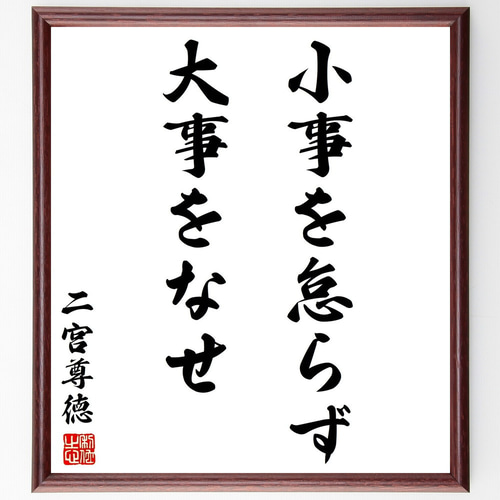 小事を怠らず
大事をなせ
二宮尊徳